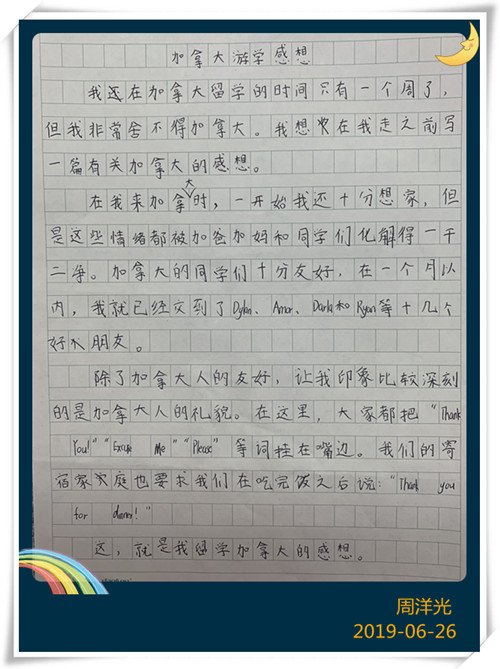 加拿大游学感想
我还在加拿大留学的时间只有一个周了，
但我非常舍不得加拿大。我想在我走之前写
一篇有关加拿大的感想。
在我来加拿大时，一开始我还十分想家，但
是这些情绪都被加爸加妈和同学们化解得一干
二净。加拿大的同学们十分友好，在一个月以
内，我就已经交到了Dylan、Amar、Darla和Ryan等十几个
好朋友。
除了加拿大人的友好，让我印象比较深刻
的是加拿大人的礼貌。在这里，大家都把“Thank
You!”“Excuse Me”“Please”等词挂在嘴边。我们的寄
宿家庭也要求我们在吃完饭之后说：“Thank you
for dinner!”
这，就是我留学加拿大的感想。
周洋光
2019-06-26